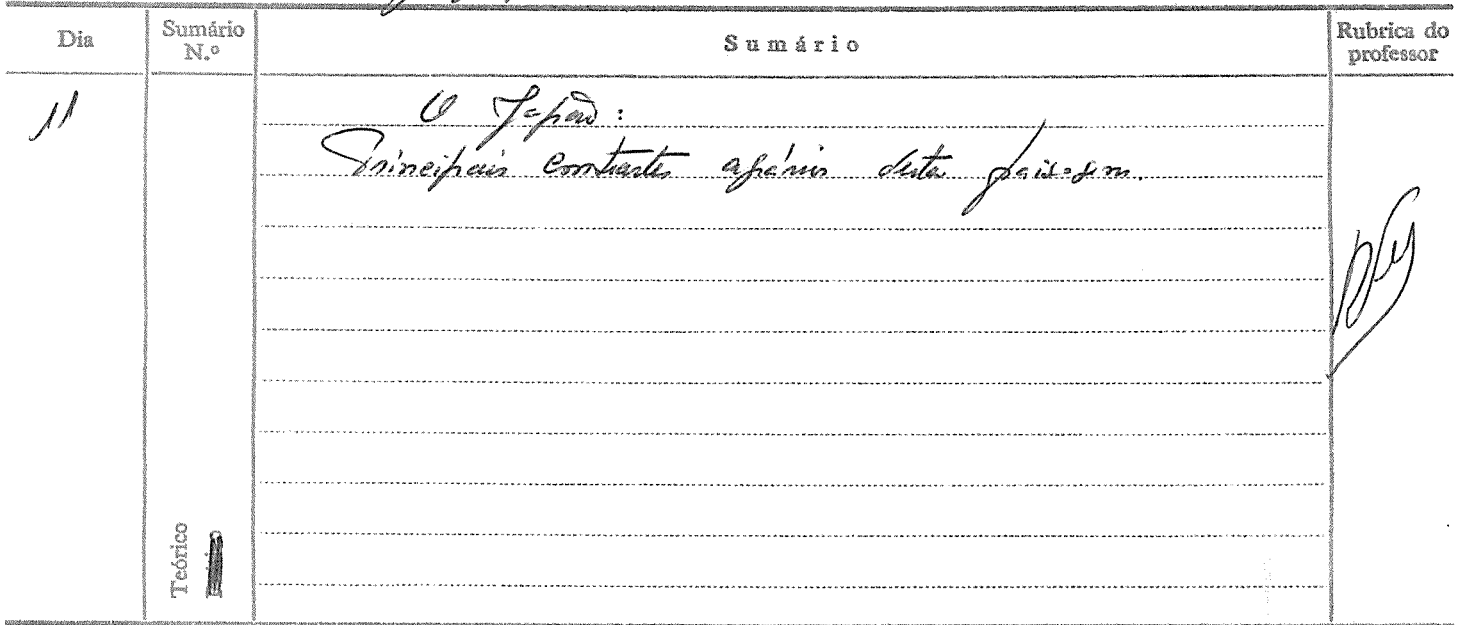 Dia
Sumário N.º
Sumário
Rubrica do professor
11
O Japão:
Principais contrastes agrários desta paisagem.
Teórico